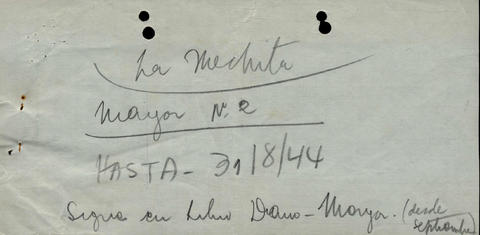 La Mechita
Mayor N. 2
HASTA - 31/8/44
Sigue en Libro Diario - Mayor. (desde
septiembre)